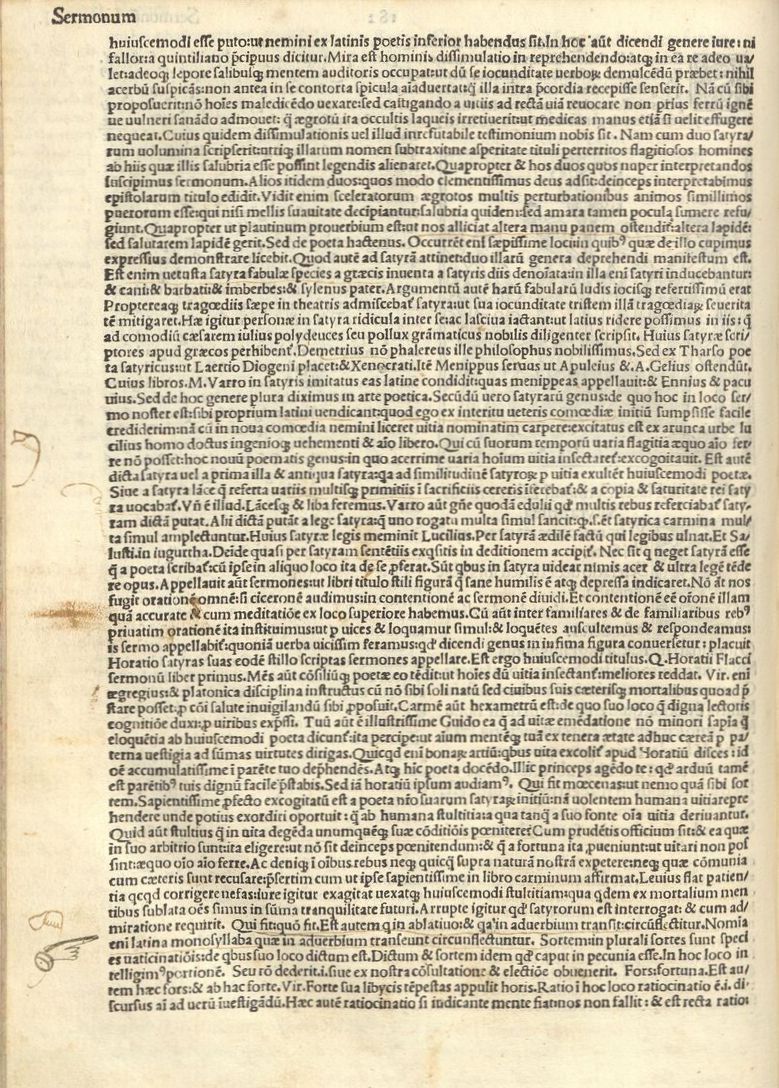 Sermonum
huiuscemodi esse puto:ut nemini ex latinis poetis inferior habendus sit.In hoc aūt dicendi genere iure: ni
fallor:a quintiliano p̄cipuus dicitur.Mira est hominis dissimulatio in reprehendendo:atq; in ea re adeo ua/
let:adeoq; lepore salibusq; mentem auditoris occupat:ut dū se iocunditate uerboꝝ demulcēdū præbet: nihil
acerbū suspicās:non antea in se contorta spicula aīaduertat:q̄ illa intra p̄cordia recepisse senserit. Nā cū sibi
proposuerit:nō hoīes maledicēdo uexare:sed castigando a uitiis ad rectā uiā reuocare non prius ferrū ignē
ue uulneri sanādo admouet: q̄ ægrotū ita occultis laqueis irretiuerit:ut medicas manus etiā si uelit effugere
nequeat.Cuius quidem dissimulationis uel illud irrefutabile testimonium nobis sit. Nam cum duo satyra/
rum uolumina scripserit:utriq; illarum nomen subtraxit:ne asperitate tituli perterritos flagitiosos homines
ab hiis quæ illis salubria esse possint legendis alienaret.Quapropter & hos duos quos nuper interpretandos
suscipimus sermonum.Alios itidem duos:quos modo clementissimus deus adsit:deinceps interpretabimus
epistolarum titulo edidit.Vidit enim sceleratorum ægrotos multis perturbationibus animos simillimos
puerorum esse:qui nisi mellis suauitate decipiantur:salubria quidem:sed amara tamen pocula sumere refu/
giunt.Quapropter ut plautinum prouerbium est:ut nos alliciat altera manu panem ostendit:altera lapidē:
sed salutarem lapidē gerit. Sed de poeta hactenus. Occurrēt eni sæpissime loci:in quibꝰ quæ de illo cupimus
expressius demonstrare licebit. Quod autē ad satyrā attinet:duo illarū genera deprehendi manifestum est.
Est enim uetusta satyra fabulæ species a græcis inuenta a satyris diis denoīata:in illa eni satyri inducebantur:
& cani:& barbati:& imberbes:& sylenus pater. Argumentū autē harū fabularū ludis iocisq; refertissimū erat
Proptereaq; tragœdiis sæpe in theatris admiscebat satyra:ut sua iocunditate tristem illā tragœdiaꝝ seuerita
tē mitigaret.Hæ igitur personæ in satyra ridicula inter se:ac lasciua iactant:ut latius ridere possimus in iis: q̄
ad comodiū cæsarem iulius polydeuces seu pollux grāmaticus nobilis diligenter scripsit. Huius satyræ scri/
ptores apud græcos perhibent. Demetrius nō phalereus ille philosophus nobilissimus. Sed ex Tharso poe
ta satyricus:ut Laertio Diogeni placet:& Xenocrati.Itē Menippus seruus ut Apuleius & .A.Gelius ostendūt.
Cuius libros.M.Varro in satyris imitatus eas latine condidit:quas menippeas appellauit:& Ennius & pacu
uius. Sed de hoc genere plura diximus in arte poetica. Secūdū uero satyrarū genus:de quo hoc in loco ser/
mo noster est:sibi proprium latini uendicant:quod ego ex interitu ueteris comœdiæ initiū sumpsisse facile
crediderim:nā cū in noua comœdia nemini liceret uitia nominatim carpere:excitatus est ex arunca urbe lu
cilius homo doctus ingenioq; uehementi & aīo libero. Qui cū suorum temporū uaria flagitia æquo aīo fer/
re nō posset:hoc nouū poematis genus:in quo acerrime uaria hoīum uitia insectaret:excogitauit. Est autē
dicta satyra uel a prima illa & antiqua satyra:qa ad similitudinē satyroꝝ p uitia exultēt huiuscemodi poetæ.
Siue a satyra lāce q̄ referta uariis multisq; primitiis ī sacrificiis cereris iferebat:& a copia & saturitate rei saty
ra uocabat. Vn̄ ē illud.Lācesq; & liba feremus. Varro aūt gn̄e quodā edulii qd' multis rebus referciabat saty/
ram dictā putat. Alii dictā putāt a lege satyra:q̄ uno rogatu multa simul sancit:q. s.ēt satyrica carmina mul/
ta simul amplectuntur. Huius satyræ legis meminit Lucilius. Per satyrā ædilē factū qui legibus uluat. Et Sa/
lusti.in iugurtha. Deīde quasi per satyram sentētiis exqsitis in deditionem accipit. Nec sit q neget satyrā esse
q̄ a poeta scribat:cū ipse in aliquo loco ita de se pferat. Sūt qbus in satyra uidear nimis acer & ultra legē tēde
re opus. Appellauit aūt sermones:ut libri titulo stili figurā q̄ sane humilis ē atq; depressa indicaret. Nō āt nos
fugit orationē omnē:si ciceronē audimus:in contentionē ac sermonē diuidi. Et contentionē eē oronē illam
quā accurate & cum meditatiōe ex loco superiore habemus. Cū aūt inter familiares & de familiaribus rebꝰ
priuatim orationē ita instituimus:ut p uices & loquamur simul:& loquētes auscultemus & respondeamus:
is sermo appellabit:quoniā uerba uicissim feramus:qd' dicendi genus in infima figura conuersetur: placuit
Horatio satyras suas eodē stillo scriptas sermones appellare. Est ergo huiuscemodi titulus. Q. Horatii Flacci
sermonū liber primus. Mēs aūt cōsiliūq; poetæ eo tēdit:ut hoīes dū uitia insectant:meliores reddat. Vir. eni
ægregius:& platonica disciplina instructus cū nō sibi soli natū sed ciuibus suis cæterisq; mortalibus quoad p̄
stare posset:p cōi salute inuigilandū sibi pposuit. Carmē aūt hexametrū est:de quo suo loco q̄ digna lectoris
cognitiōe duxi:p uiribus exp̄ssi. Tuū aūt ē illustrissime Guido ea q̄ ad uitæ emēdatione nō minori sapīa q̄
eloquētia ab huiuscemodi poeta dicunt:ita percipe:ut aīum mentēq; tuā ex tenera ætate adhuc cæreā p pa/
terna uestigia ad sūmas uirtutes dirigas. Quicqd enī bonaꝝ artiū:qbus uita excolit apud Horatiū disces : id
oē accumulatissime ī parēte tuo dep̄hendēs. Atq; hic poeta docēdo. Illic princeps agēdo te: qd' arduū tamē
est parētibꝰ tuis dignū facile p̄stabis. Sed iā horatiū ipsum audiamꝰ. Qui fit mœcenas:ut nemo quā sibi sor
tem. Sapientissime pfecto excogitatū est a poeta nr̄o suarum satyraꝝ initiū:nā uolentem humana uitia repre
hendere unde potius exordiri oportuit : q̄ ab humana stultitia:a qua tanq̄ a suo fonte oīa uitia deriuantur.
Quid aūt stultius q̄ in uita degēda unumquēq; suæ cōditiōis pœnitere: Cum prudētis officium sit:& ea quæ
in suo arbitrio sunt:ita eligere:ut nō sit deinceps pœnitendum:& q̄ a fortuna ita pueniunt:ut uitari non pos
sint:æquo oīo aīo ferre. Ac deniq; ī oībus rebus neq; quicq̄ supra naturā nostrā expetere:neq; quæ cōmunia
cum cæteris sunt recusare:p̄sertim cum ut ipse sapientissime in libro carminum affirmat. Leuius fiat patien/
tia qcqd corrigere nefas:iure igitur exagitat uexatq; huiuscemodi stultitiam:qua qdem ex mortalium men
tibus sublata oēs simus in sūma tranquilitate futuri. Arrupte igitur qd' satyrorum est interrogat: & cum ad/
miratione requirit. Qui fit:quō fit. Est autem q in ablatiuo:& qa in aduerbium transit:circūflectitur. Nomīa
eni latina monosyllaba quæ in aduerbium transeunt circunflectuntur. Sortem:in plurali sortes sunt speci
es uaticinatiōis:de qbus suo loco dictum est. Dictum & sortem idem qd' caput in pecunia esse. In hoc loco in
telligimꝰ portionē. Seu rō dederit.i.siue ex nostra cōsultatione & electiōe obuenerit. Fors:fortuna. Est au/
tem hæc fors:& ab hac forte. Vir. Forte sua libycis tēpestas appulit horis. Ratio ī hoc loco ratiocinatio ē.i. di-
scursus aī ad uerū iuestigādū. Hæc autē ratiocinatio si indicante mente fiat:nos non fallit: & est recta ratio: